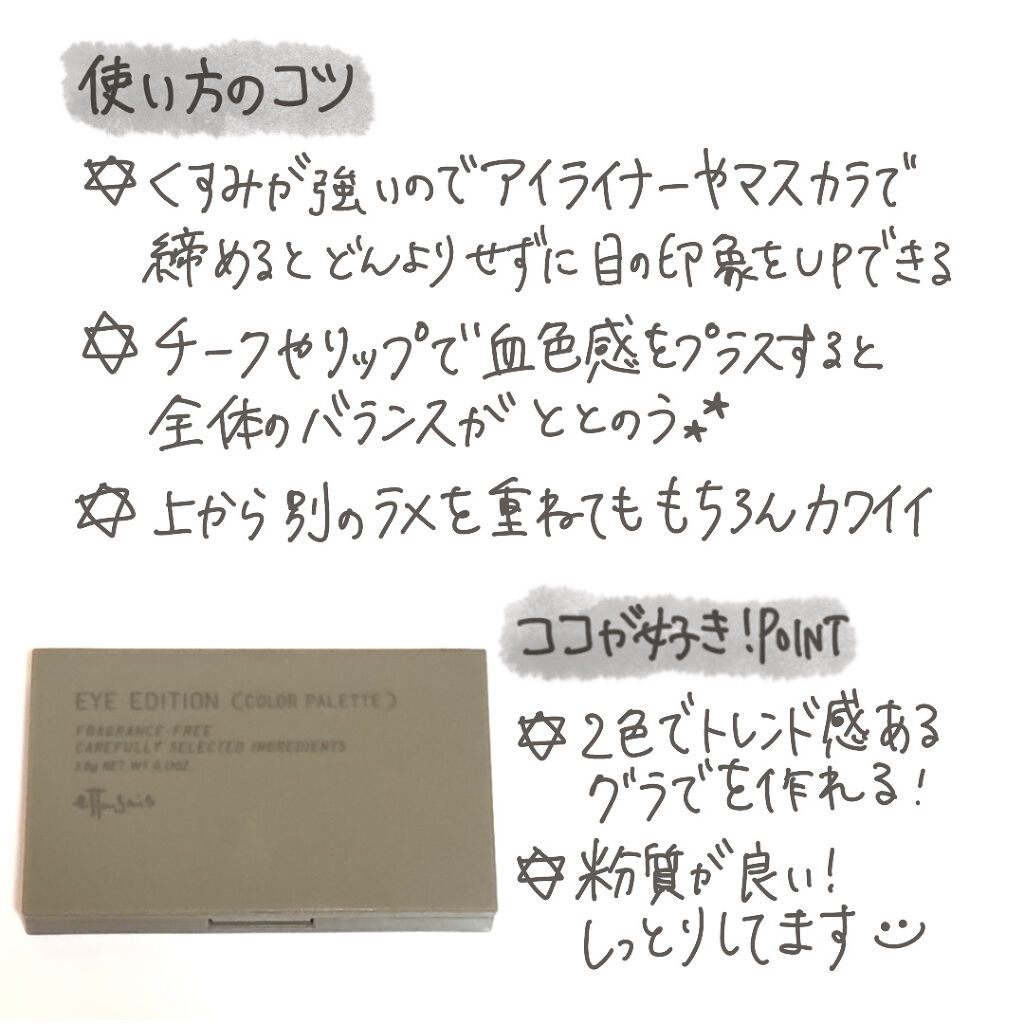 使い方のコツ
✡くすみが強いのでアイライナーやマスカラで
締めるとどんよりせずに目の印象をUPできる
✡チークやリップで血色感をプラスすると
全体のバランスがととのう
✡上から別のラメを重ねてももちろんカワイイ
ココが好き!POINT
✡2色でトレンド感ある
グラデを作れる!
✡粉質が良い!
しっとりしてます
EYE EDITION (COLOR PALETTE)
FRAGRANCE-FREE
CAREFULLY SELECTED INGREDIENTS
3.8g NET WT 0.13OZ.
ettusais